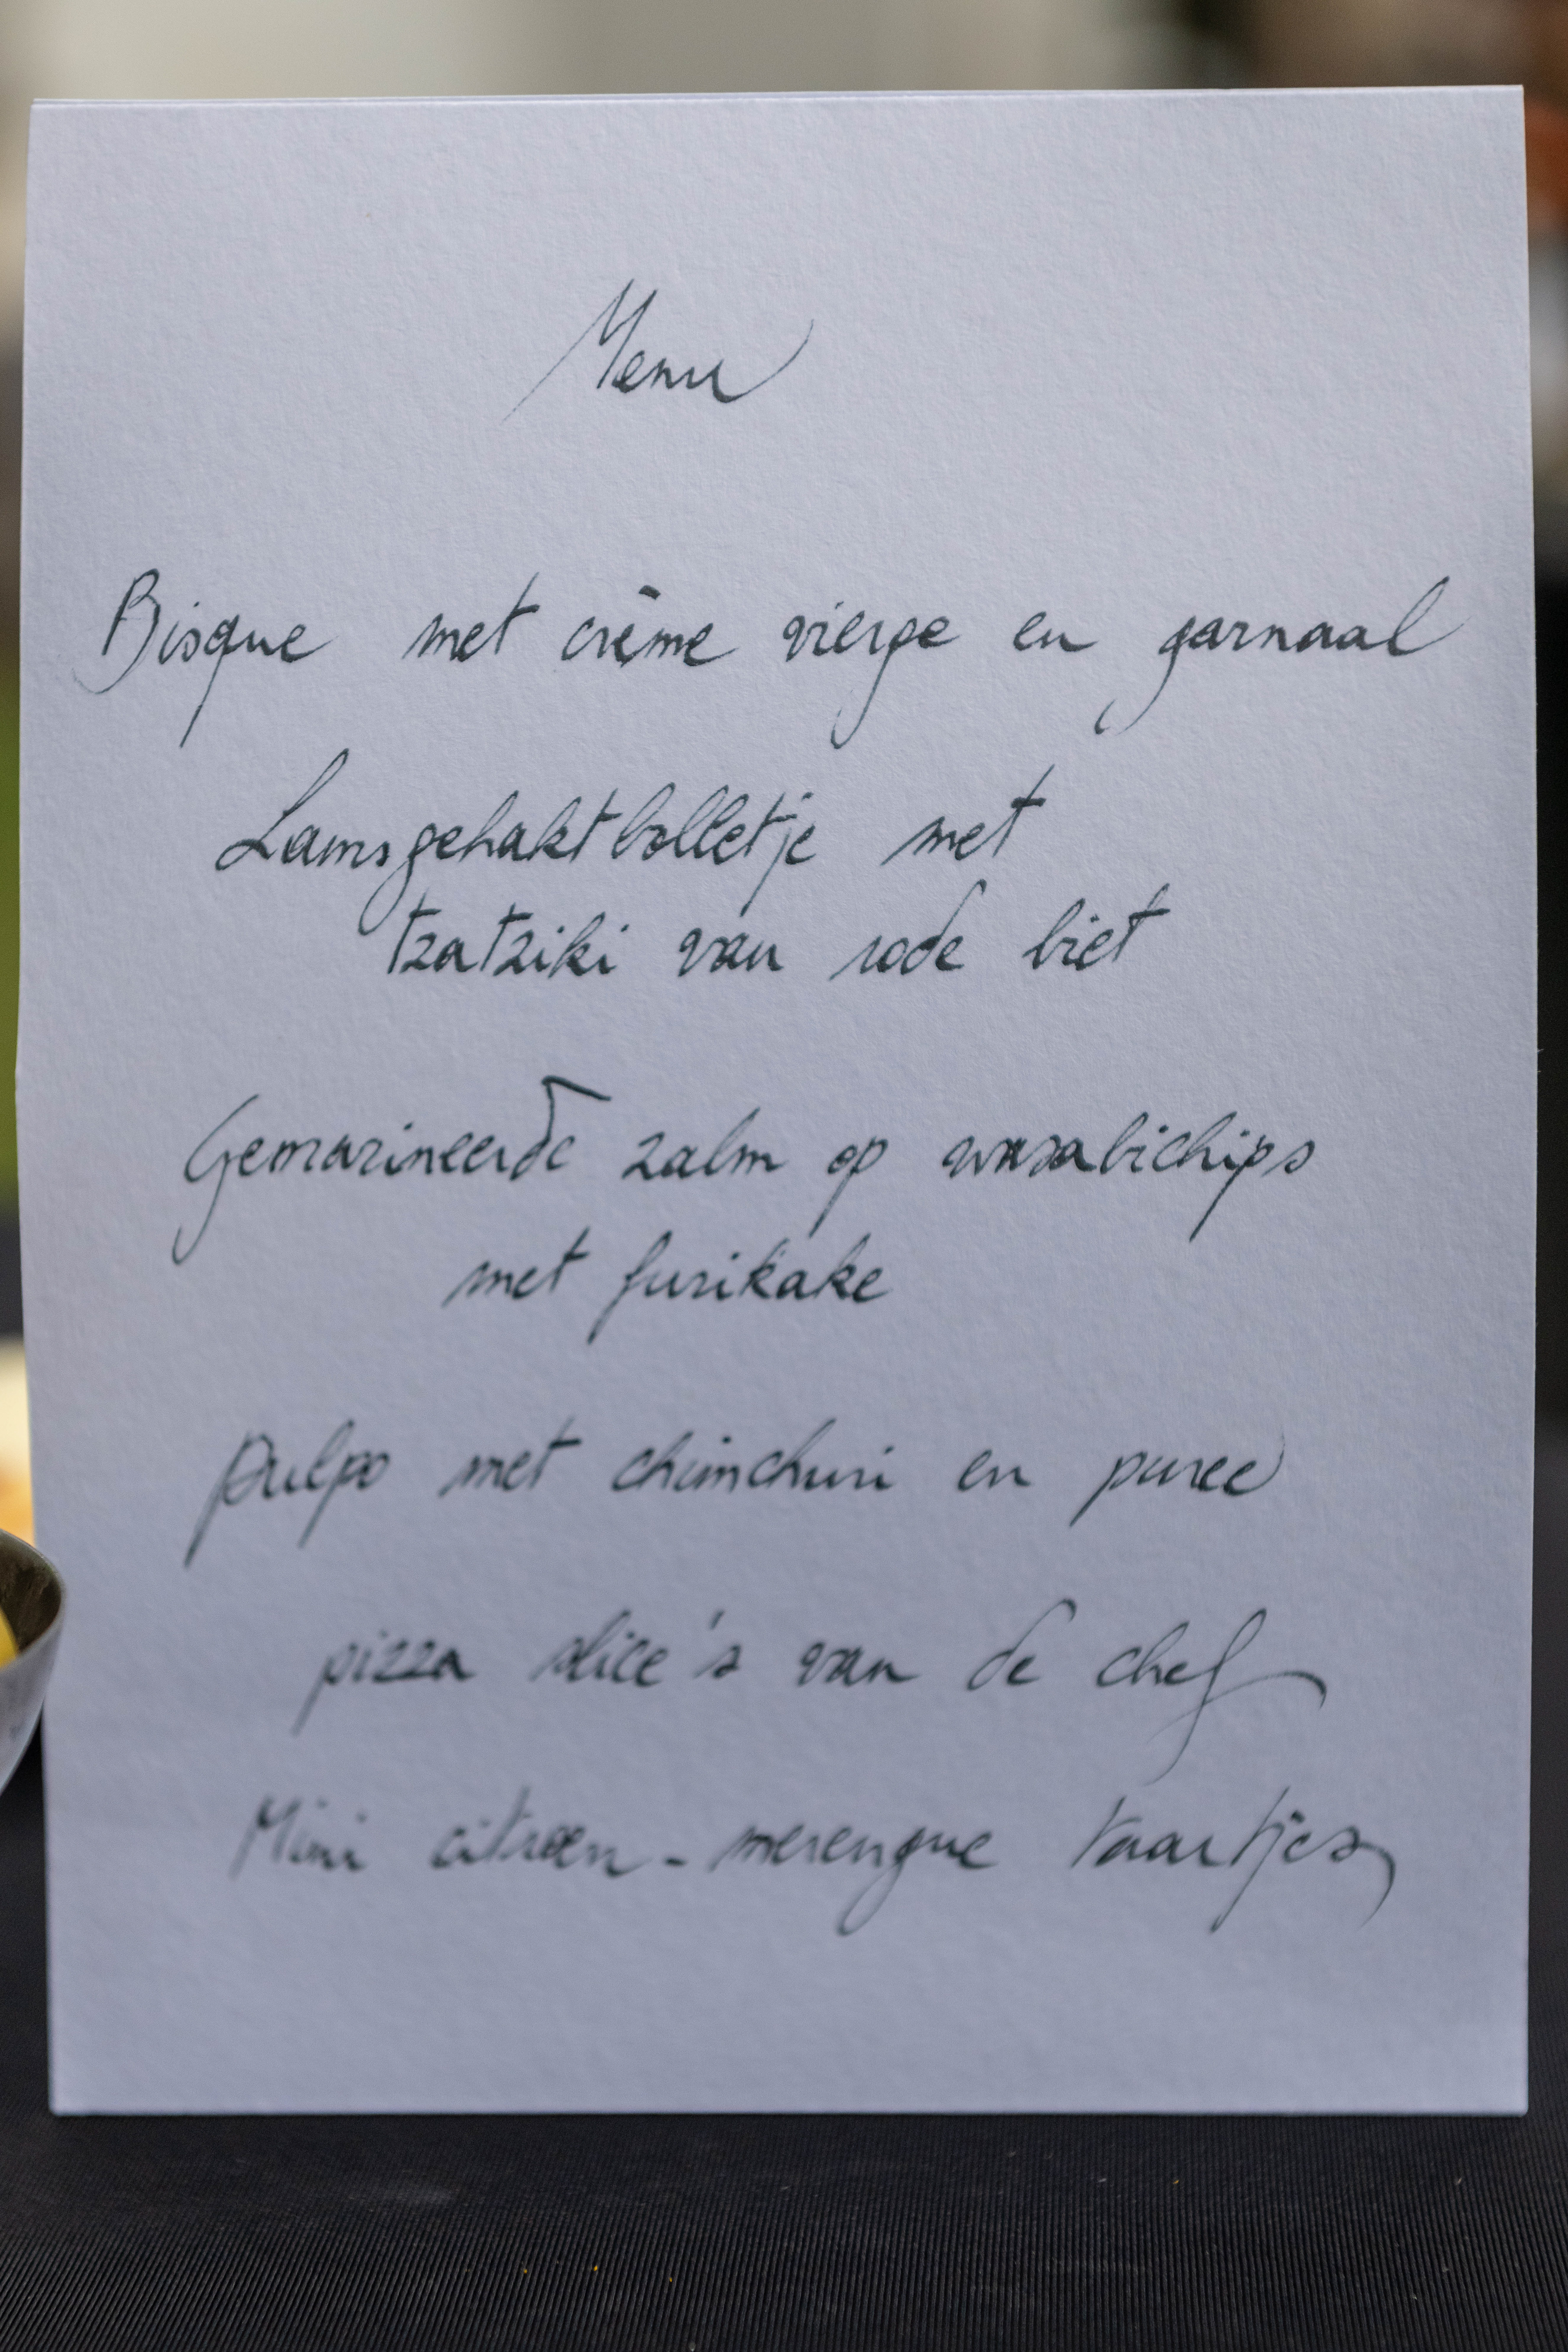 Menu
Bisque met crème vierge en garnaal
Lamsgehaktbolletje met
tzatziki van rode biet
Gemarineerde zalm op wasabichips
met furikake
Pulpo met chimchuri en puree
pizza slice's van de chef
Mini citroen - merengue taartjes